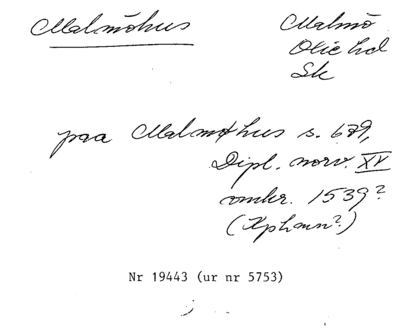 Malmöhus
Malmö
Oxie hd
Sk
paa Malmøhus s. 679,
Dipl. norv. XV
omkr. 1539?
(Kphamn?)
Nr 19443 (ur nr 5753)